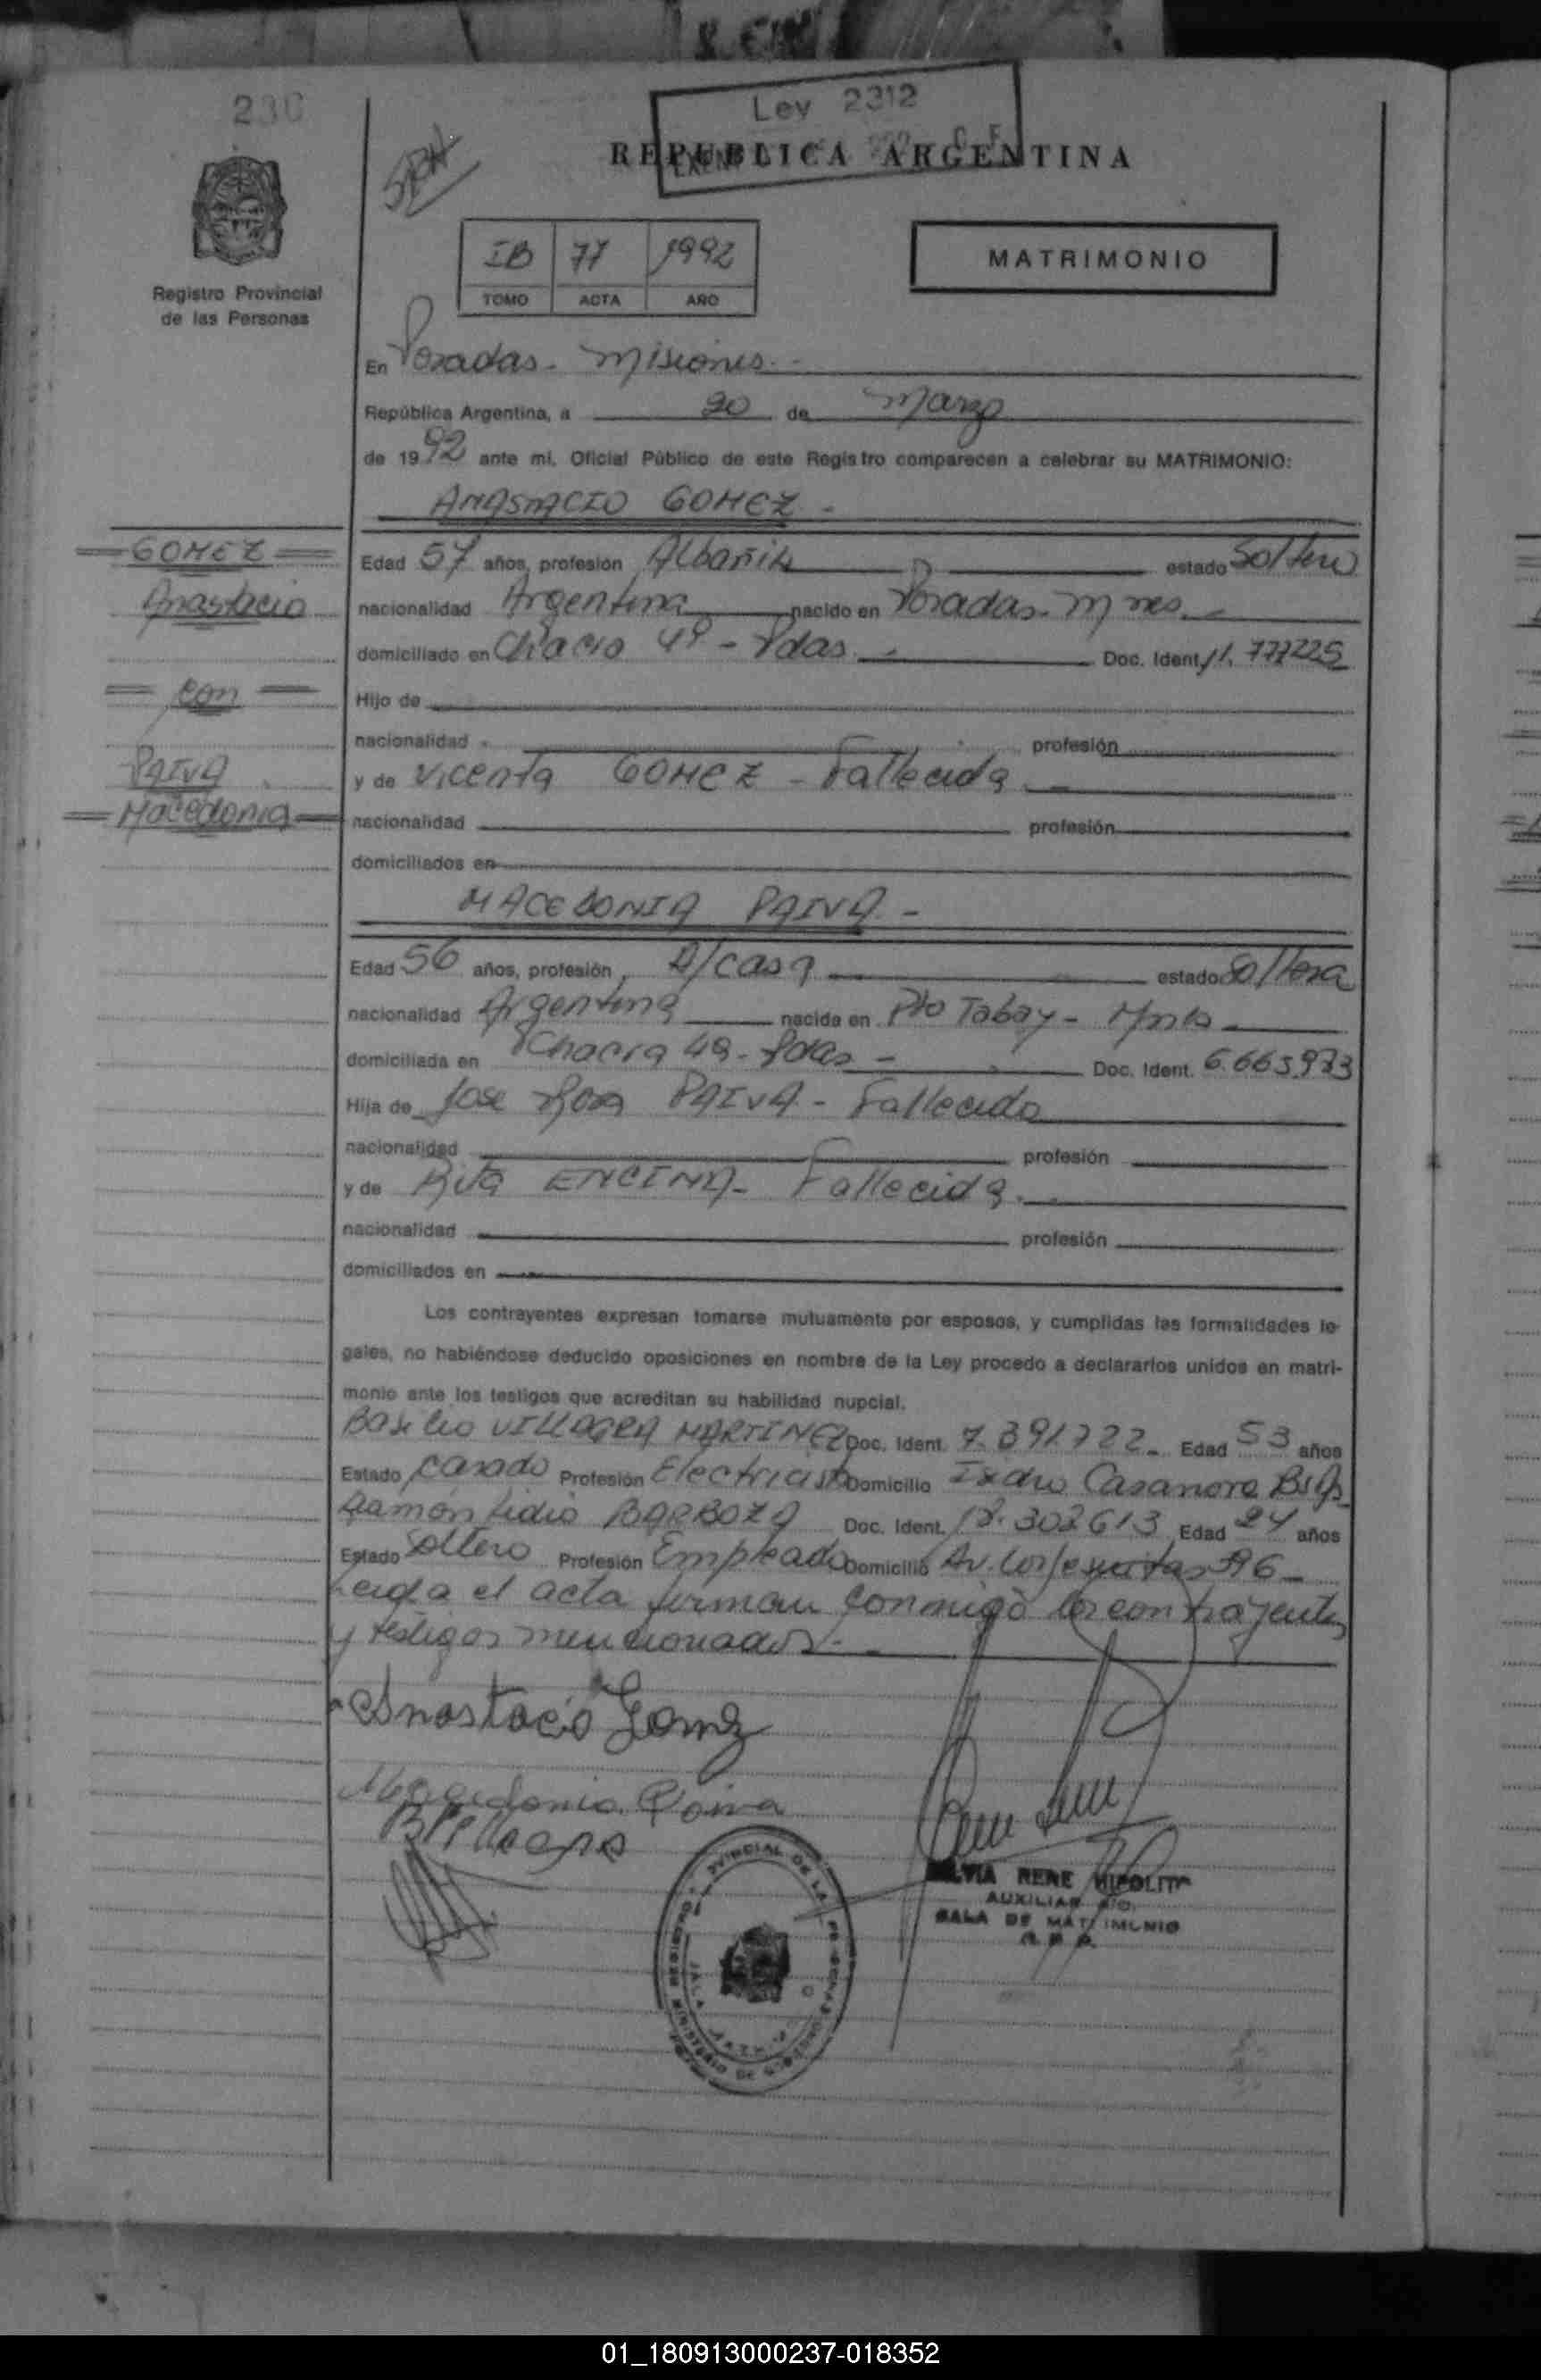 230
Ley 2312
REPUBLICA ARGENTINA
IB 77 1992
TOMO ACTA AÑO
MATRIMONIO
Registro Provincial
de las Personas
En Posadas - Misiones.-
República Argentina, a 20 de Marzo
de 1992 ante mi, Oficial Público de este Registro comparecen a celebrar su MATRIMONIO:
ANASTACIO GOMEZ -
GOMEZ
Anastacio
con
PAIVA
Macedonia
Edad 57 años, profesión Albañil estado Soltero
nacionalidad Argentina nacido en Posadas. Mnes. -
domiciliado en Chacra 49 - Pdas. - Doc. Ident.
Hijo de
nacionalidad profesión
y de Vicenta GOMEZ - Fallecida. -
nacionalidad profesión
domiciliados en
MACEDONIA PAIVA -
Edad 56 años, profesión, A/casa estado Soltera
nacionalidad Argentina nacida en Pto Tabay - Mnes
domiciliada en Chacra 49 - Pdas - Doc. Ident. 6.663.973
Hija de Jose Rosa PAIVA - Fallecido
nacionalidad profesión
y de Rita ENCINA - Fallecida. -
nacionalidad profesión
domiciliados en
Los contrayentes expresan tomarse mutuamente por esposos, y cumplidas las formalidades le-
gales, no habiéndose deducido oposiciones en nombre de la Ley procedo a declararlos unidos en matri-
monio ante los testigos que acreditan su habilidad nupcial.
Basilio VILLAGRA MARTINEZ Doc. Ident. 7.391.722 - Edad 53 años
Estado Casado Profesión Electricista Domicilio Isidro Casanova Bs As
Ramón Lidio BARBOZA Doc. Ident. 18.302613 Edad 24 años
Estado Soltero Profesión Empleado Domicilio Av. Los Jesuitas 396 -
Leida el acta firman conmigo los contrayentes
y testigos mencionados. -
Anastacio Gomez
Macedonia Paiva
BVillagra
SILVIA RENE HIPOLITO
AUXILIAR
SALA DE MATRIMONIO
01_180913000237-018352